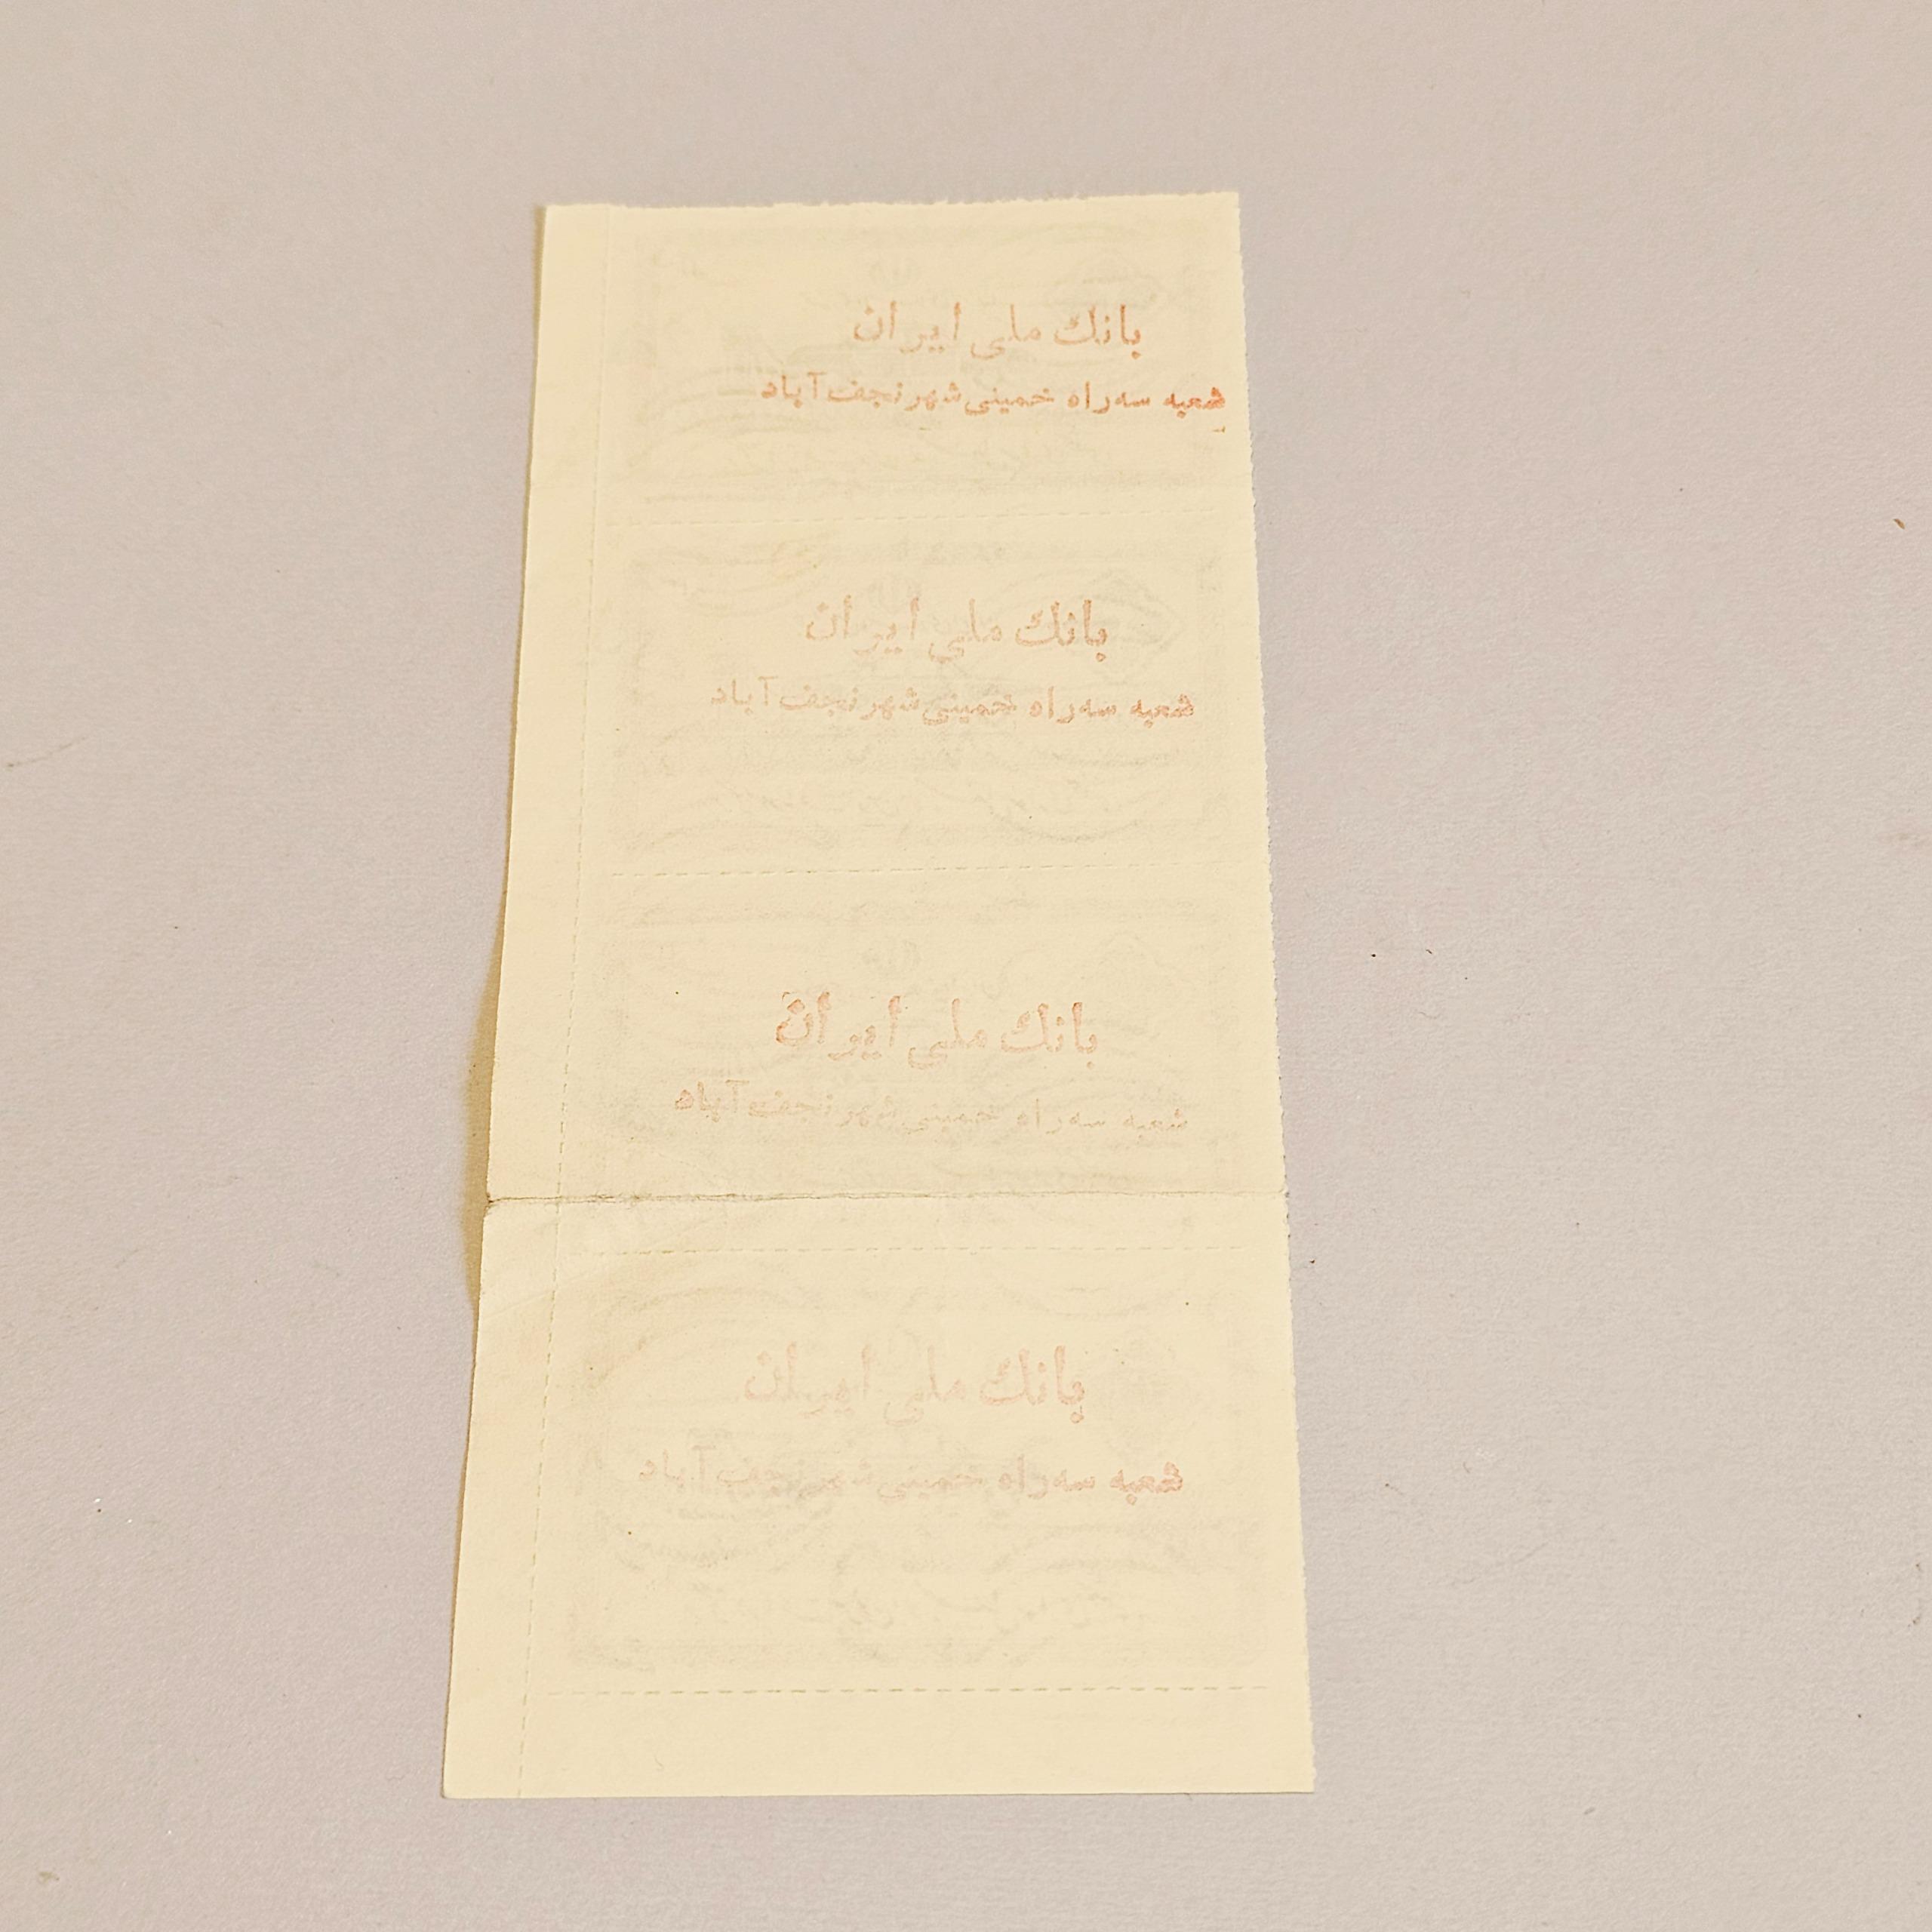 بانك ملی ایران
شعبه سه‌راه خمینی‌شهر نجف‌آباد
بانك ملی ایران
شعبه سه‌راه خمینی‌شهر نجف‌آباد
بانك ملی ایران
شعبه سه‌راه خمینی‌شهر نجف‌آباد
بانك ملی ایران
شعبه سه‌راه خمینی‌شهر نجف‌آباد